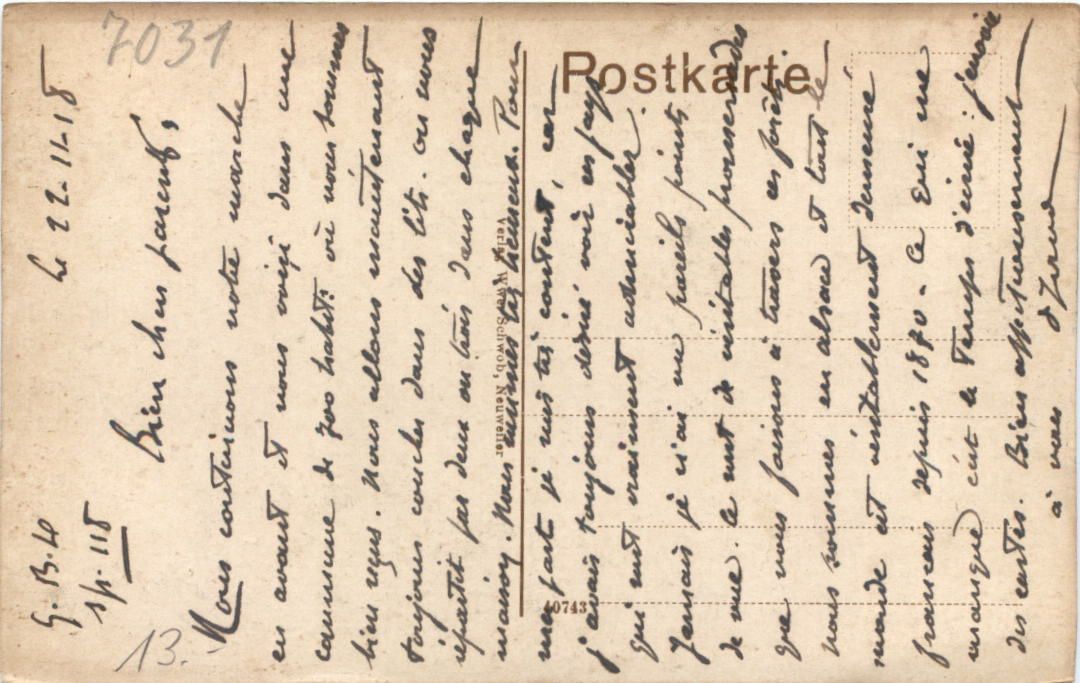 7031
Postkarte
G.B.D
Sp. 118
le 22-11-18
Bien chers parents,
Nous continuons notre marche
en avant et nous voici dans une
commune de 700 habts où nous sommes
bien reçus. Nous allons maintenant
toujours coucher dans des lits. on nous
répartit par deux ou trois dans chaque
maison. Nous sommes très heureux. Pour
ma part je suis très content, car
j'avais toujours désiré voir ces pays
qui sont vraiment admirables.
Jamais je n'ai vu pareils points
de vue. Ce sont de véritables promenades
que nous faisons à travers ces forêts
nous sommes en alsace et tout le
monde est véritablement demeuré
français depuis 1870 - Ce qui me
manque c'est le temps d'écrire : j'envoie
des cartes. Bien affectueusement
à vous
Verlag W. Schwob, Neuweiler
40743
13.